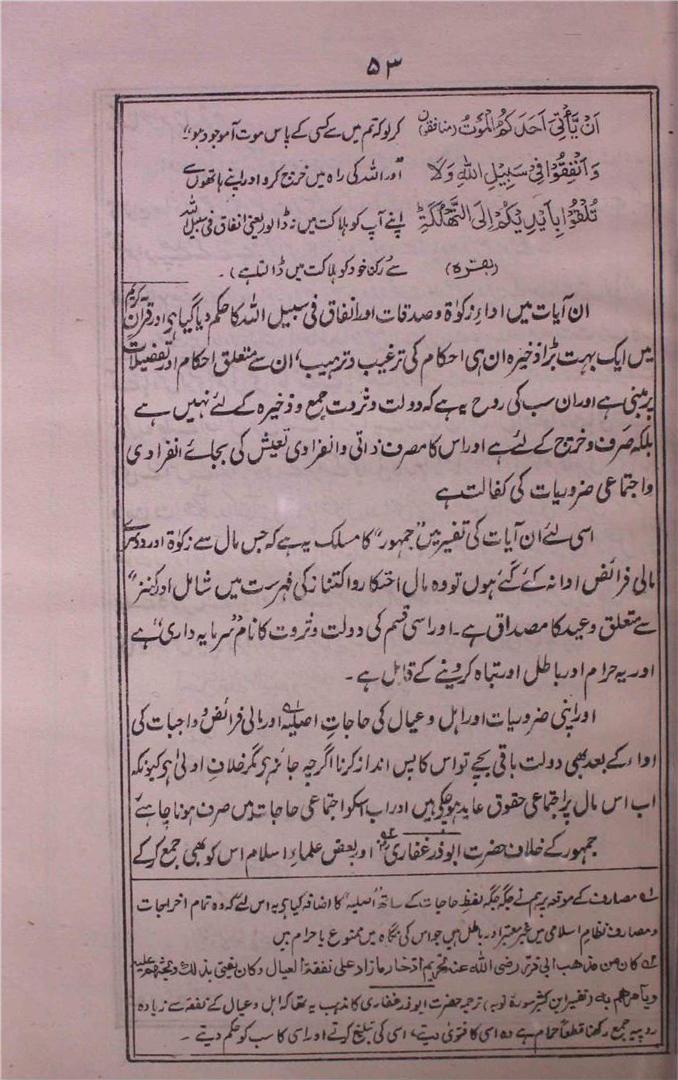 ۵۳
اَنْ یَّأْتِیَ اَحَدَکُمُ الْمَوْتُ (منافقون) کر لو کہ تم میں سے کسی کے پاس موت آ موجود ہو"۔
وَاَنْفِقُوْا فِیْ سَبِیْلِ اللهِ وَلَا "اور اللہ کی راہ میں خرچ کرو اور اپنے ہاتھوں سے
تُلْقُوْا بِاَیْدِیْکُمْ اِلَی التَّهْلُکَةِ اپنے آپ کو ہلاکت میں نہ ڈالو یعنی انفاق فی سبیل اللہ
(بقرہ) سے رکنا خود کو ہلاکت میں ڈالنا ہے)۔
ان آیات میں اداءِ زکوٰۃ و صدقات اور انفاق فی سبیل اللہ کا حکم دیا گیا ہے اور قرآن کریم
میں ایک بہت بڑا ذخیرہ ان ہی احکام کی ترغیب و ترہیب، ان سے متعلق احکام اور تفصیلات
پر مبنی ہے اور ان سب کی روح یہ ہے کہ دولت و ثروت جمع و ذخیرہ کے لئے نہیں ہے
بلکہ صَرف و خرچ کے لئے ہے اور اس کا مصرف ذاتی و انفرادی تعیش کی بجائے انفرادی
و اجتماعی ضروریات کی کفالت ہے
اسی لئے ان آیات کی تفسیر میں "جمہور" کا مسلک یہ ہے کہ جس مال سے زکوٰۃ اور دوسرے
مالی فرائض ادا نہ کئے گئے ہوں تو وہ مال احتکار و اکتناز کی فہرست میں شامل اور "کنز"
سے متعلق وعید کا مصداق ہے۔ اور اسی قسم کی دولت و ثروت کا نام "سرمایہ داری" ہے
اور یہ حرام اور باطل اور تباہ کر دینے کے قابل ہے۔
اور اپنی ضروریات اور اہل و عیال کی حاجاتِ اصلیہ اور مالی فرائض و واجبات کی
اداء کے بعد بھی دولت باقی بچے تو اس کا پس انداز کرنا اگرچہ جائز ہے مگر خلافِ اولیٰ ہے کیونکہ
اب اس مال پر اجتماعی حقوق عاید ہو چکے ہیں اور اب اسکو اجتماعی حاجات میں صرف ہونا چاہئے
جمہور کے خلاف حضرت ابوذر غفاری اور بعض علماءِ اسلام اس کو بھی جمع کر کے
۱؎ مصارف کے موقعہ پر ہم نے جگہ جگہ لفظ حاجات کے ساتھ "اصلیہ" کا اضافہ کیا ہے یہ اس لئے کہ وہ تمام اخراجات
و مصارف نظامِ اسلامی میں غیر معتبر اور باطل ہیں جو اس کی نگاہ میں ممنوع یا حرام ہیں
۲؎ کان من مذهب ابی ذر رضی الله عنه تحریم ادخار ما زاد علی نفقة العیال وکان یفتی بذلک ویحثهم علیه
ویأمرهم به (تفسیر ابن کثیر سورۂ توبہ) ترجمہ حضرت ابوذر غفاری کا مذہب یہ تھا کہ اہل و عیال کے نفقہ سے زیادہ
روپیہ جمع رکھنا قطعاً حرام ہے وہ اسی کا فتویٰ دیتے، اسی کی تبلیغ کرتے اور اسی کا سب کو حکم دیتے۔